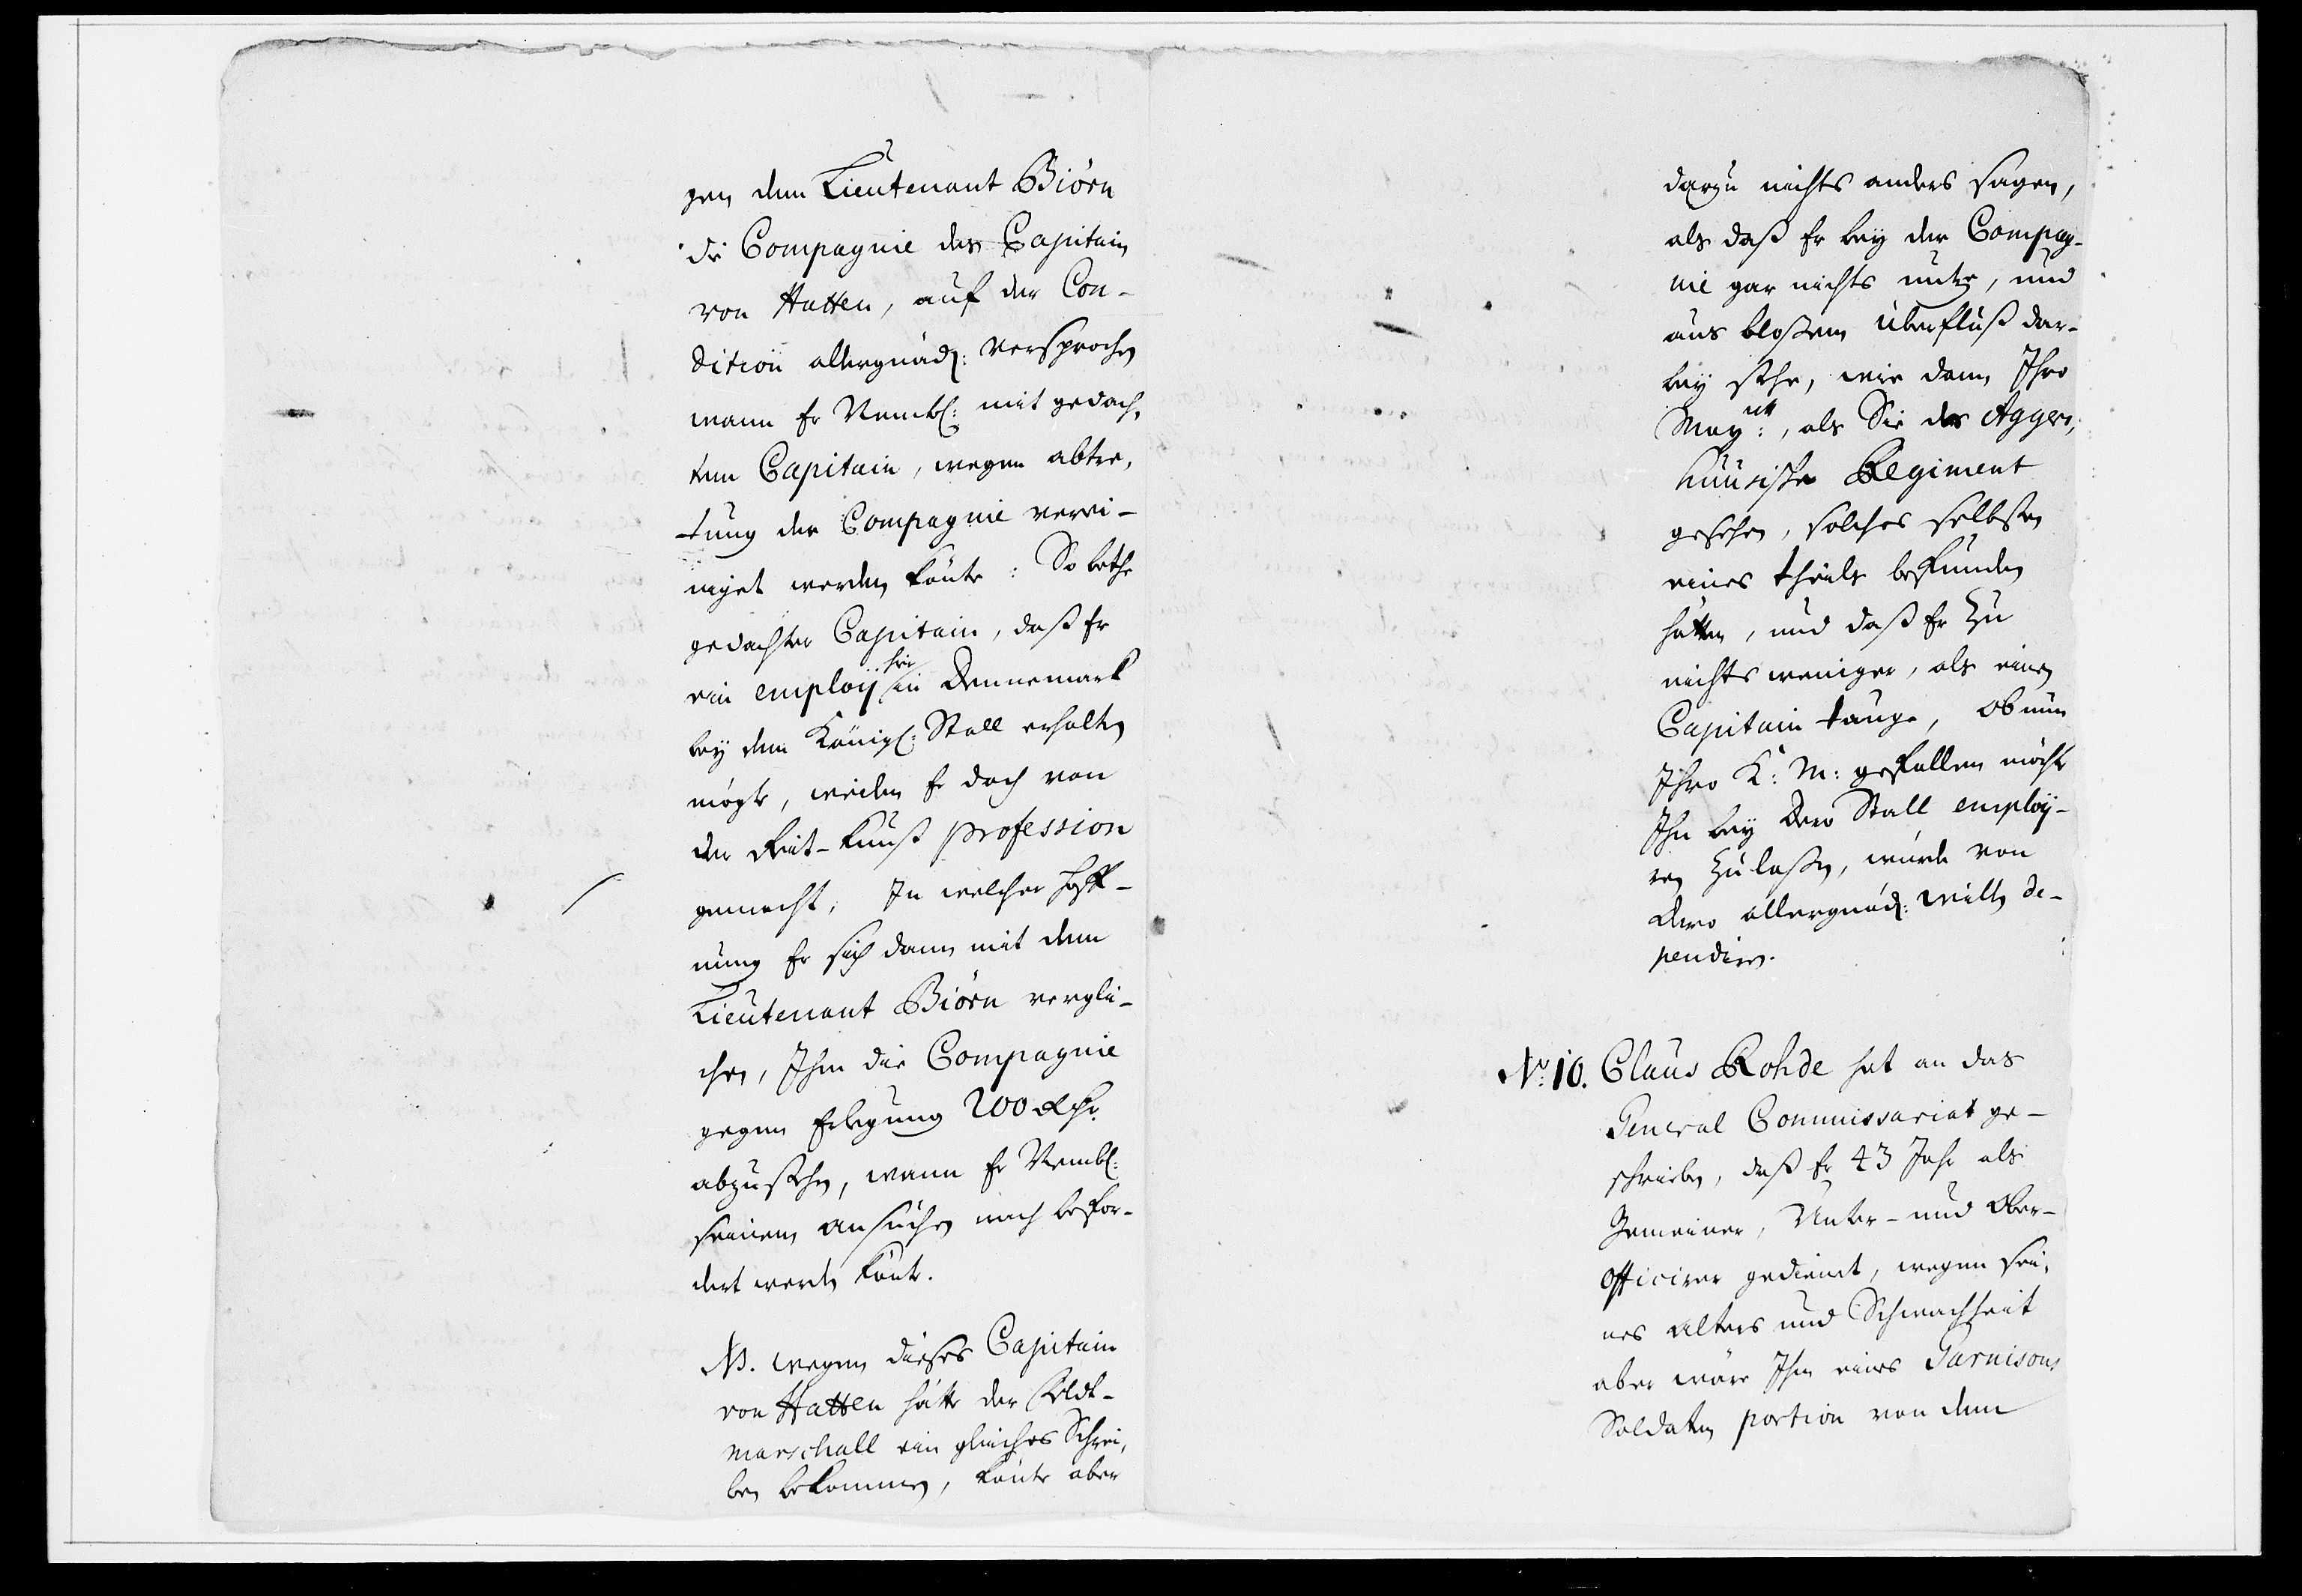 gen dem Lieutenant Biörn
die Compagnie des Capitain
von Hatten, auf der Con-
dition allergnäd: versprochen
wann Er Vembl: mit gedach,
tem Capitain, wegen abtre,
tung der Compagnie verei-
niget werden könte: So bethe
gedachter Capitain, daß Er
ein employ hie in Dennemark
bey dem Königl: Stall erhalten
mögte, weilen Er doch von
der Reit-Kunst profession
gemacht, In welcher Hoff-
nung Er sich dann mit dem
Lieutenant Biörn vergli-
chen, Ihm die Compagnie
gegen Erlegung 200 Rthr.
abzustehen, wann Er Vembl:
seinem ansuchen nach befor-
dert werden könte.
NB. wegen dieses Capitain
von Hatten hätte der Feldt-
marschall ein gleiches Schrei,
ben bekommen, könte aber
darzu nichts anders sagen,
als daß Er bey der Compag-
nie gar nichts nutze, und
aus bloßem Überfluß dar-
bey stehe, wie dann Ihro
May:tt, als Sie das Aggers,
huusische Regiment
gesehen, solches selbsten
eines theils befunden
hätten, und daß Er zu
nichts weniger, als einen
Capitain tauge, Ob nun
Ihro K: M: gefallen möchte
Ihn bey Dero Stall employ-
ren zu laßen, würde von
Dero allergnäd: willen de-
pendiren.
No: 10. Claus Rohde hat an das
General Commissariat ge-
schrieben, daß Er 43 Jahr als
Gemeiner, Unter- und Ober-
Officirer gedienet, wegen sei,
nes Alters und Schwachheit
aber wäre Ihm eines Garnisons
Soldaten portion von dem